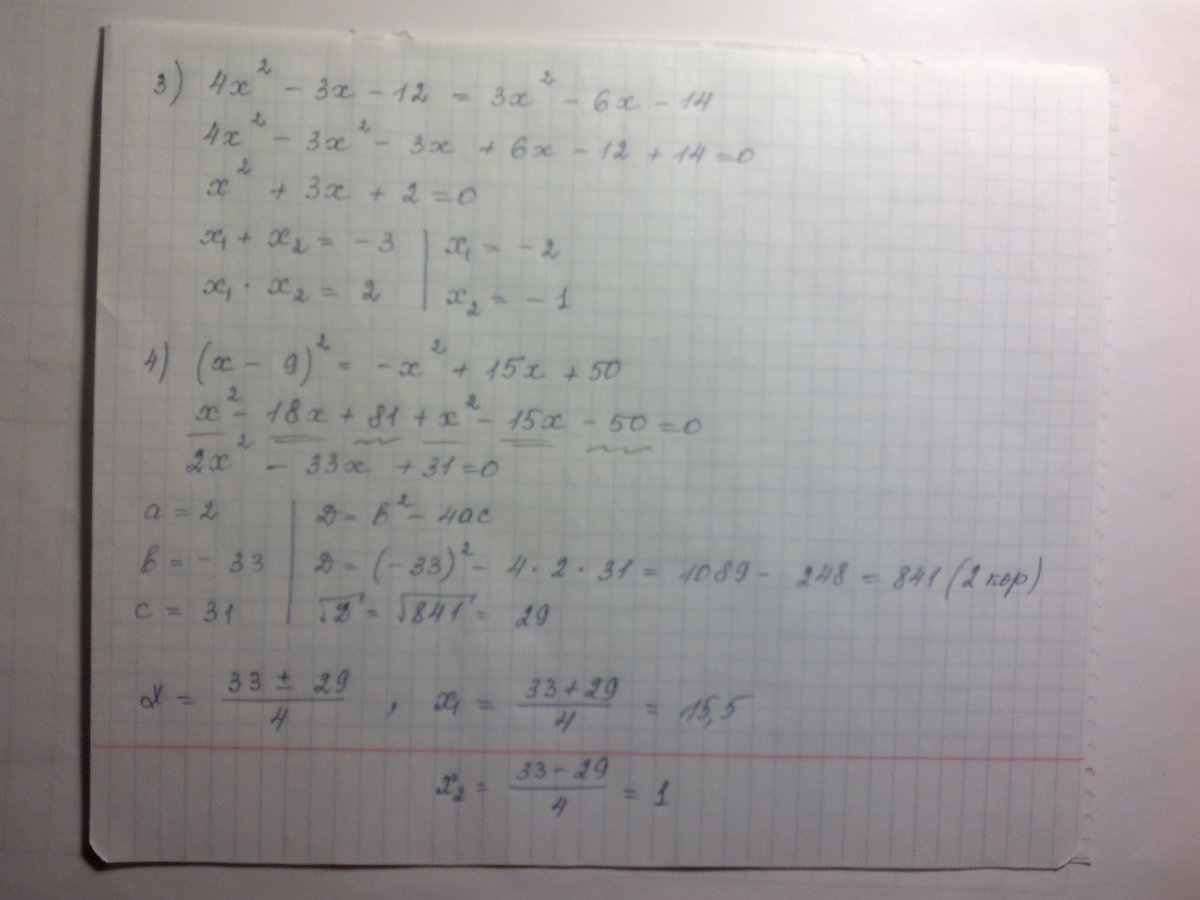 3) 4x² - 3x - 12 = 3x² - 6x - 14
4x² - 3x² - 3x + 6x - 12 + 14 = 0
x² + 3x + 2 = 0
x₁ + x₂ = -3 | x₁ = -2
x₁ · x₂ = 2 | x₂ = -1
4) (x - 9)² = -x² + 15x + 50
x² - 18x + 81 + x² - 15x - 50 = 0
2x² - 33x + 31 = 0
a = 2 | D = b² - 4ac
b = -33 | D = (-33)² - 4 · 2 · 31 = 1089 - 248 = 841 (2 кор)
c = 31 | √D = √841 = 29
x = (33 ± 29)/4 , x₁ = (33 + 29)/4 = 15,5
x₂ = (33 - 29)/4 = 1